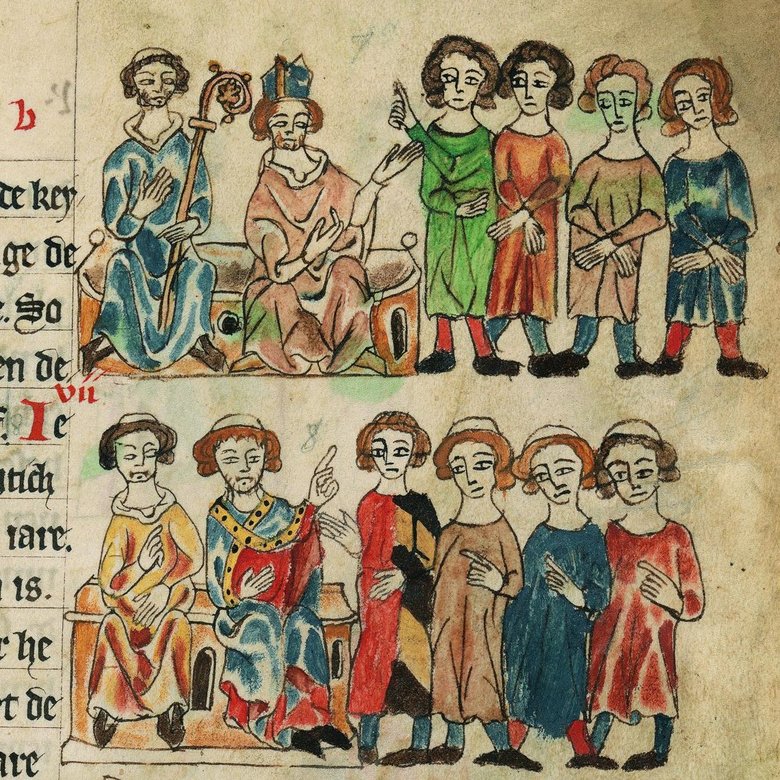 b
de key
ge de
e. So
en de
vii
f. Ie
utich
iare.
is.
r he
et de
are